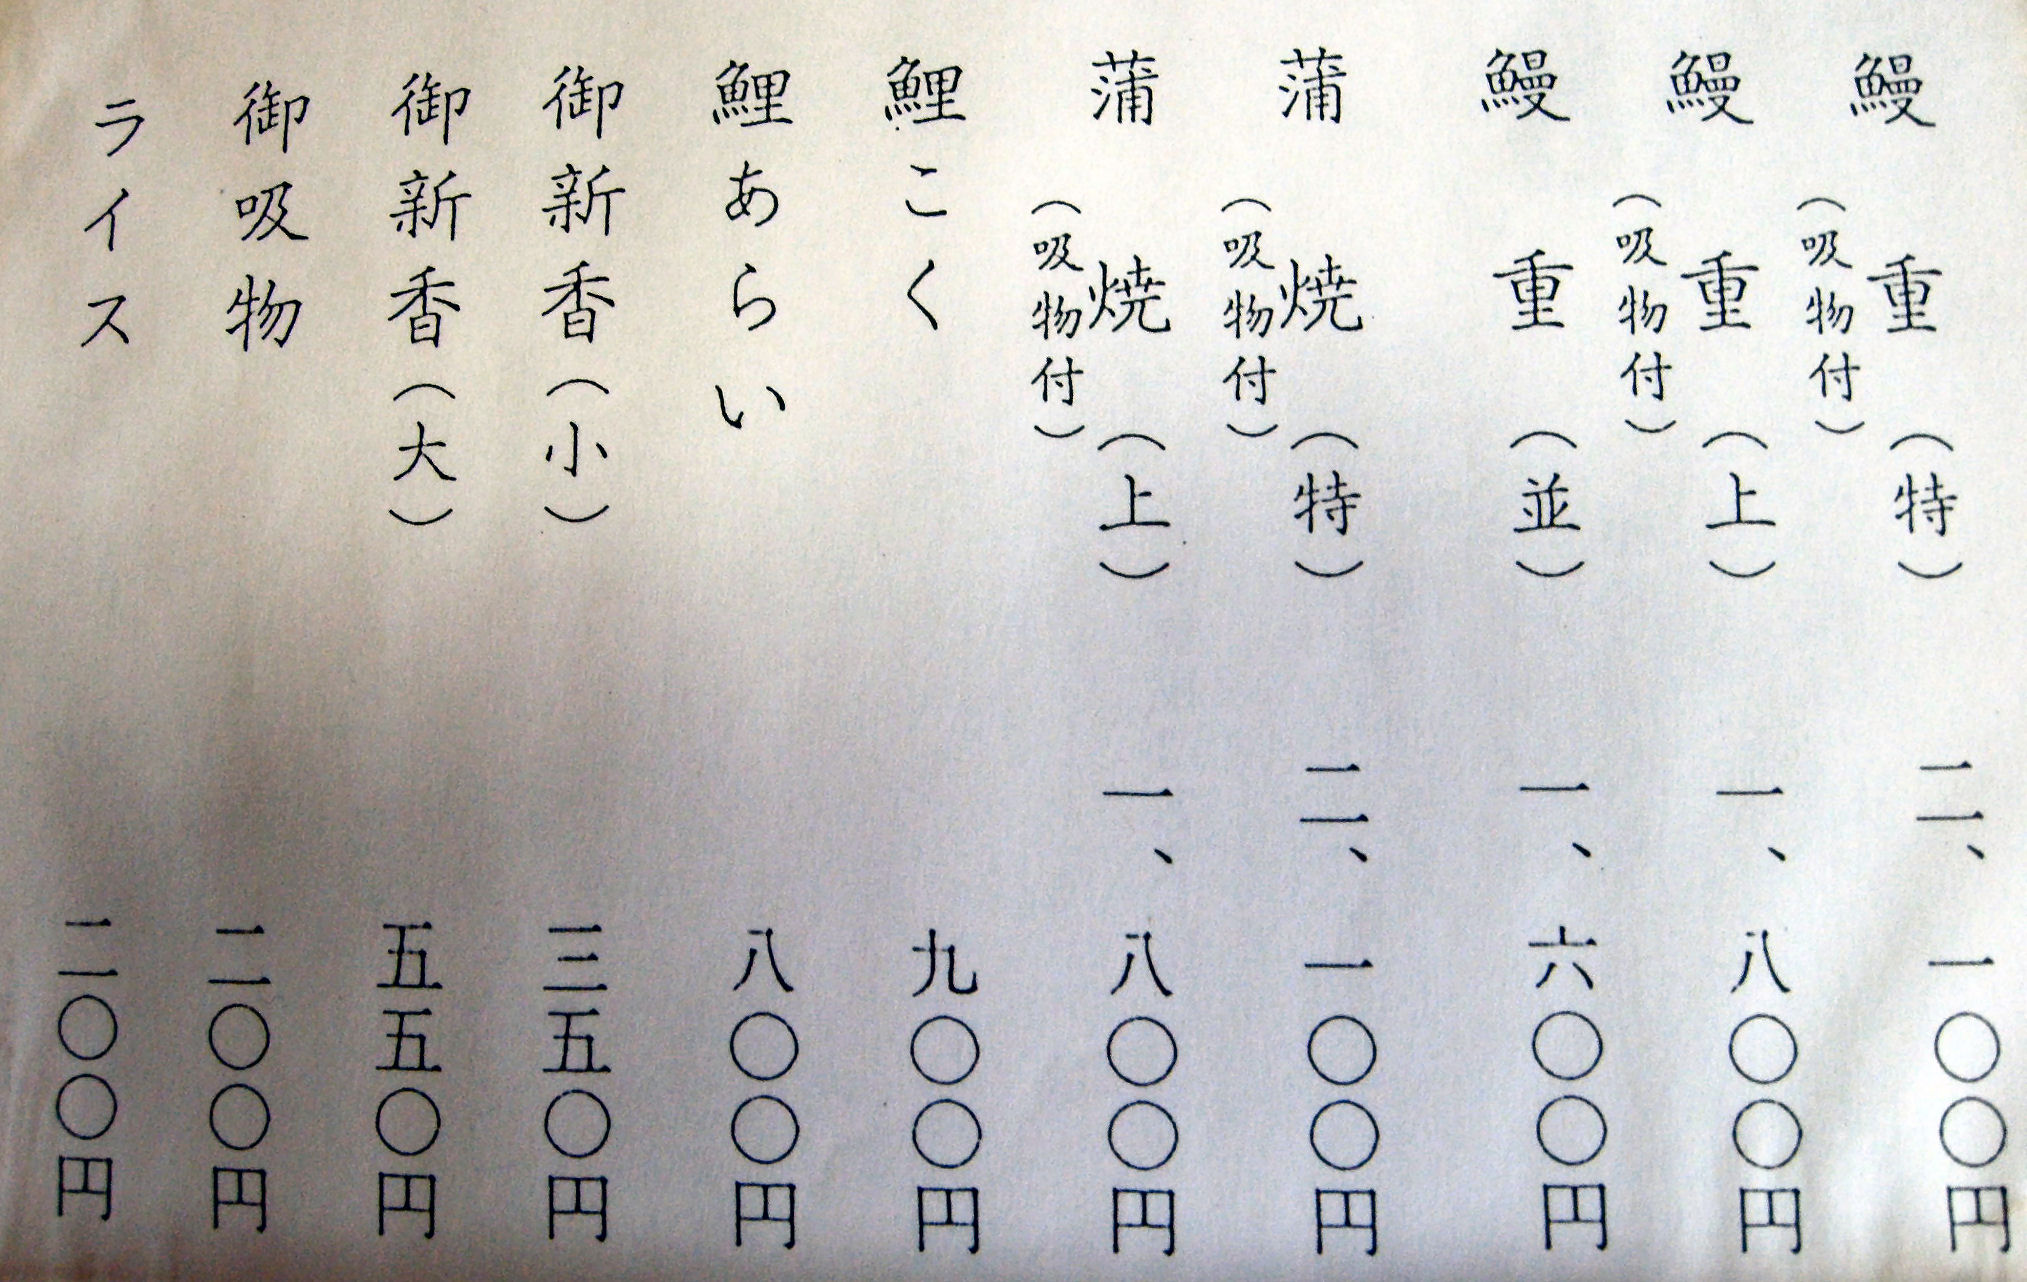 鰻重(特) 二、一〇〇円
(吸物付)
鰻重(上) 一、八〇〇円
(吸物付)
鰻重(並) 一、六〇〇円
蒲焼(特) 二、一〇〇円
(吸物付)
蒲焼(上) 一、八〇〇円
(吸物付)
鯉こく 九〇〇円
鯉あらい 八〇〇円
御新香(小) 三五〇円
御新香(大) 五五〇円
御吸物 二〇〇円
ライス 二〇〇円